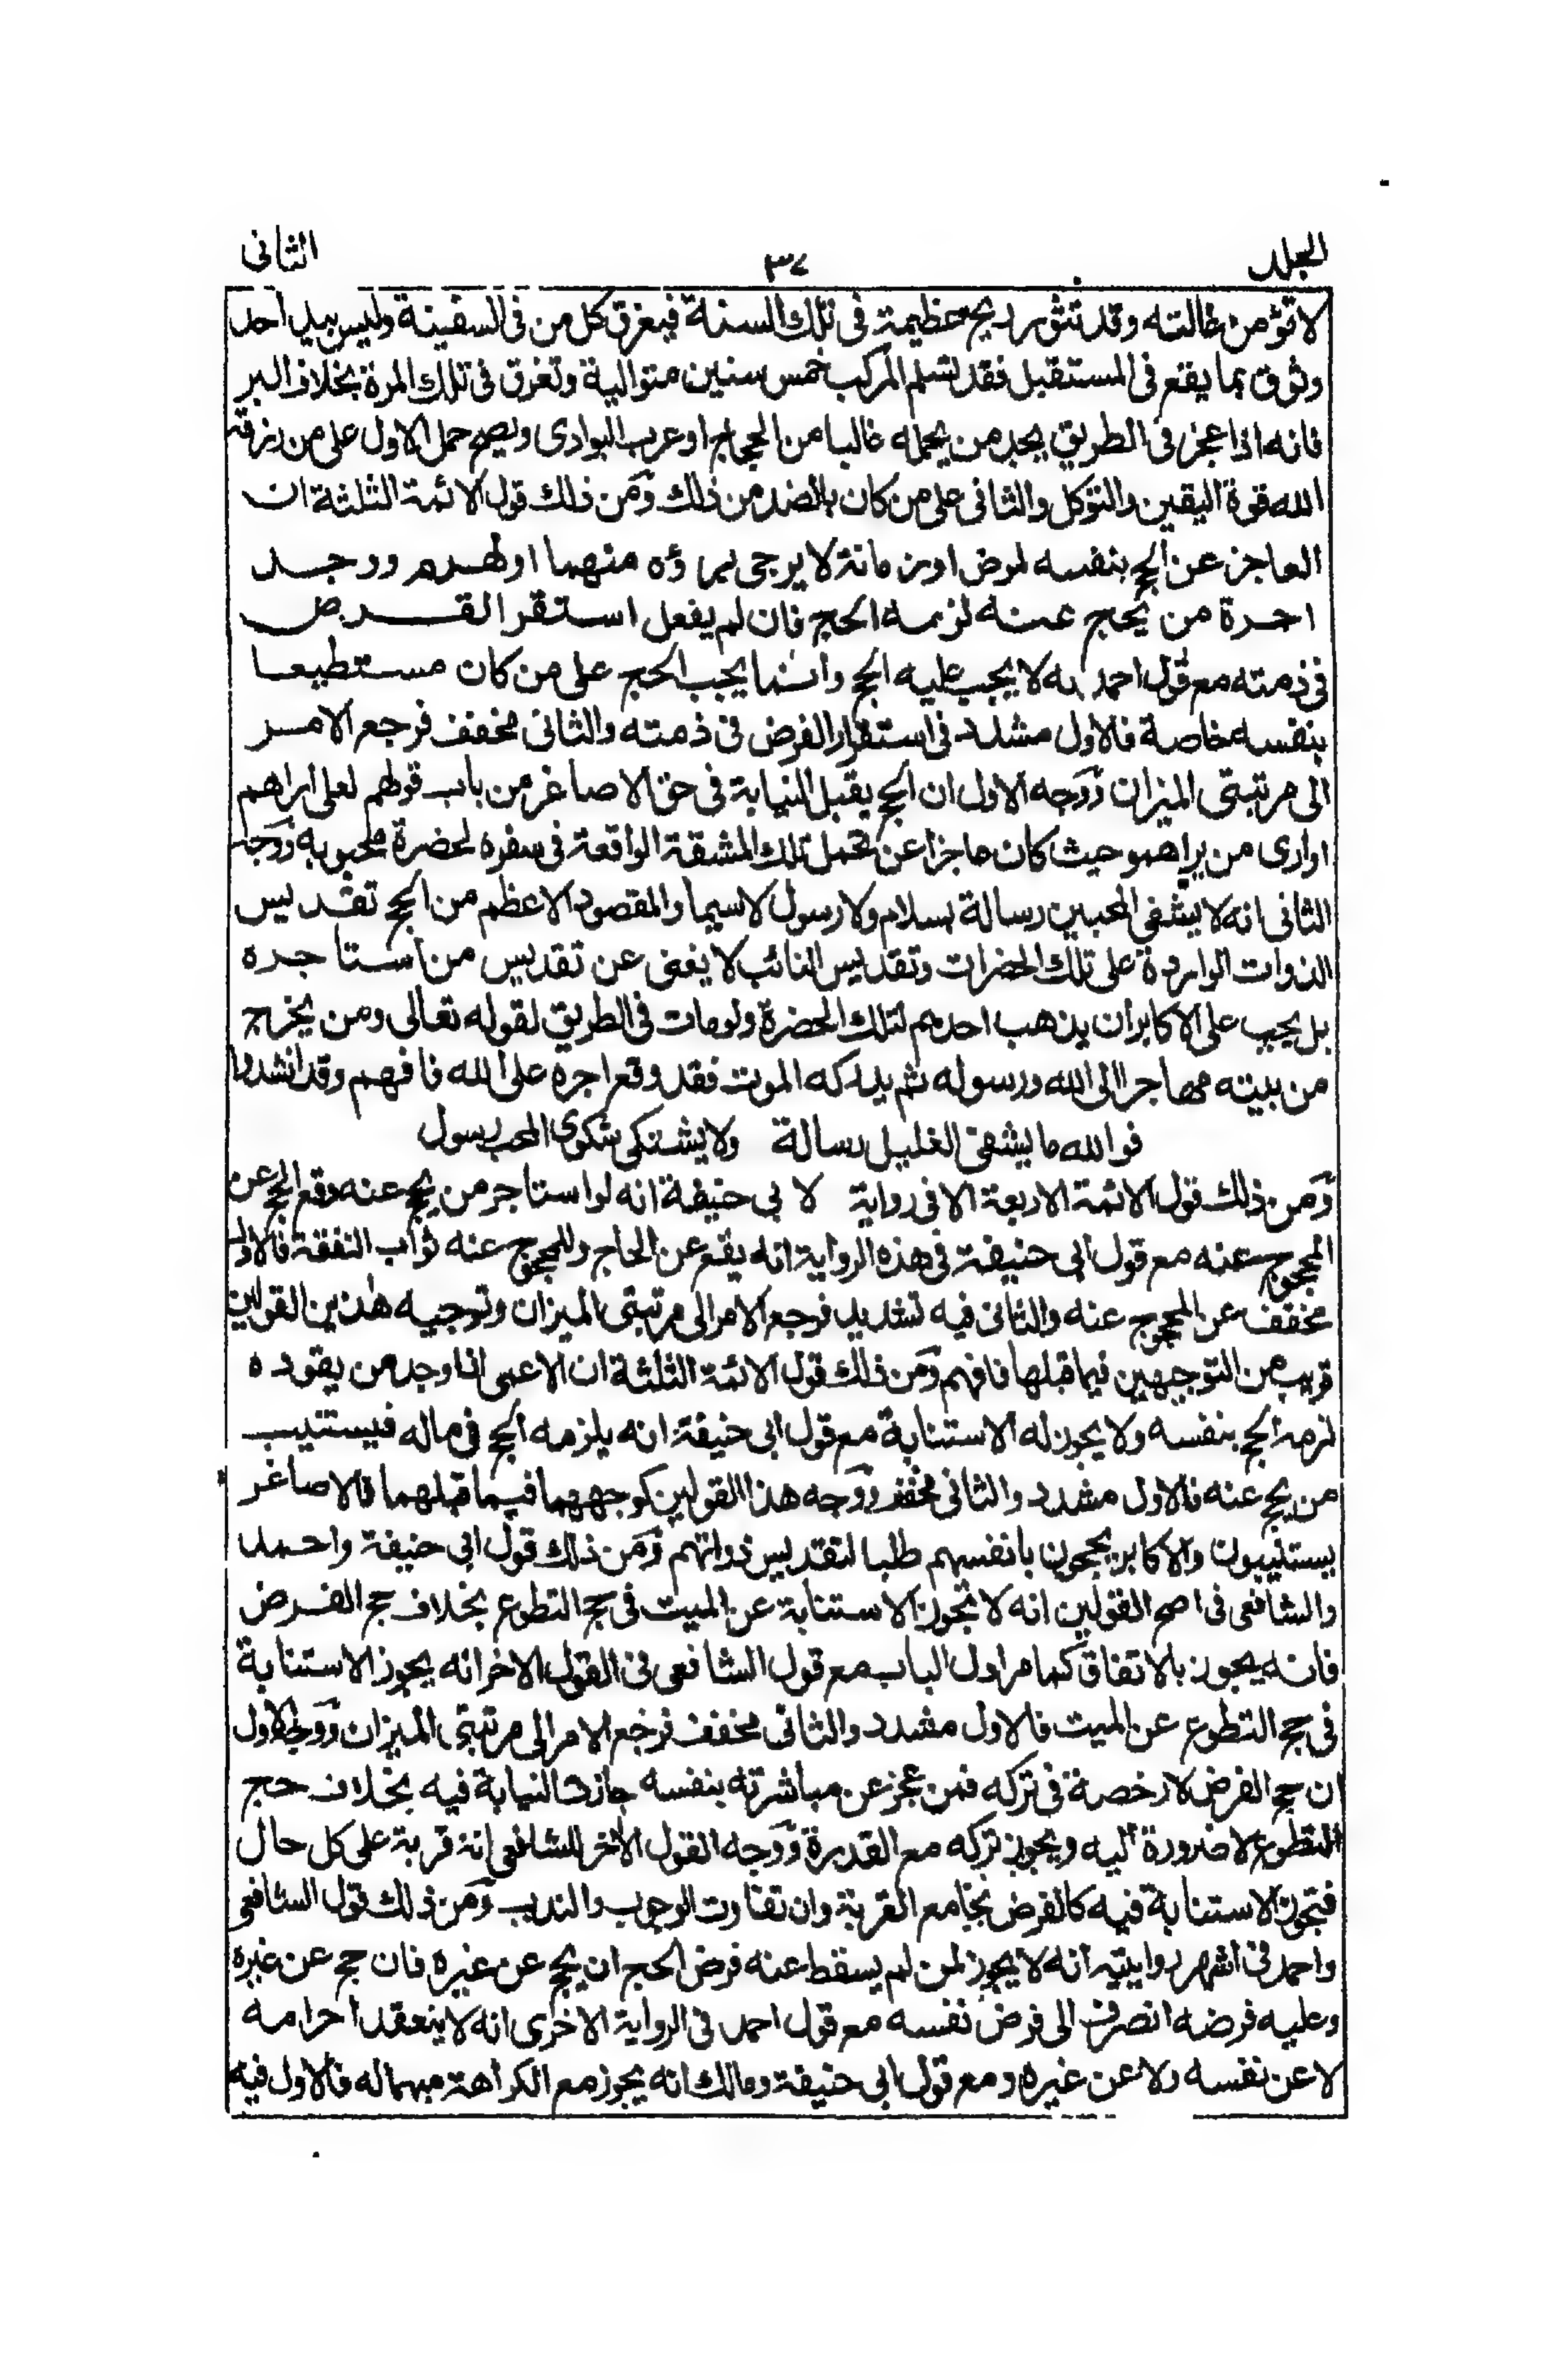 المجلد ٣٧ الثانى
لا تؤمن غائلته وقد تثور ريح عظيمة فى تلك السنة فيغرق كل من فى السفينة وليس بيد احد
وثوق بما يقع فى المستقبل فقد تسلم المركب خمس سنين متوالية وتغرق فى تلك المرة بخلاف البر
فانه اذا عجز فى الطريق يجد من يحمله غالبا من الحجاج او عرب البوادى ويصح حمل الاول على من رزقه
الله قوة اليقين والتوكل والثانى على من كان بالضد من ذلك ومن ذلك قول الائمة الثلثة ان
العاجز عن الحج بنفسه لمرض او زمانة لا يرجى برؤه منهما او لهرم ووجد
اجرة من يحج عنه لزمه الحج فان لم يفعل استقر الفرض
فى ذمته مع قول احمد به لا يجب عليه الحج وانما يجب الحج على من كان مستطيعا
بنفسه خاصة فالاول مشدد فى استقرار الفرض فى ذمته والثانى مخفف فرجع الامر
الى مرتبتى الميزان ووجه الاول ان الحج يقبل النيابة فى حق الاصاغر من باب قولهم لعلى اراهم
او ارى من يراهمو حيث كان عاجزا عن تحمل تلك المشقة الواقعة فى سفره لحضرة محبوبه ووجه
الثانى انه لا يشفى المحبين رسالة بسلام ولا رسول لاسيما والمقصود الاعظم من الحج تقديس
الذوات الواردة على تلك الحضرات وتقديس النائب لا يغنى عن تقديس من استاجره
بل يجب على الاكابر ان يذهب احدهم لتلك الحضرة ولو مات فى الطريق لقوله تعالى ومن يخرج
من بيته مهاجرا الى الله ورسوله ثم يدركه الموت فقد وقع اجره على الله فافهم وقد انشدوا
فوالله ما يشفى الغليل رسالة ولا يشتكى شكوى المحب رسول
ومن ذلك قول الائمة الاربعة الا فى رواية لابى حنيفة انه لو استاجر من يحج عنه وقع الحج عن
المحجوج عنه مع قول ابى حنيفة فى هذه الرواية انه يقع عن الحاج وللمحجوج عنه ثواب النفقة فالاول
مخفف عن المحجوج عنه والثانى فيه تشديد فرجع الامر الى مرتبتى الميزان وتوجيه هذين القولين
قريب من التوجيهين فيما قبلها فافهم ومن ذلك قول الائمة الثلثة ان الاعمى اذا وجد من يقوده
لزمه الحج بنفسه ولا يجوز له الاستنابة مع قول ابى حنيفة انه يلزمه الحج فى ماله فيستنيب
من يحج عنه فالاول مشدد والثانى مخفف ووجه هذا القولين كوجههما فيما قبلهما فالاصاغر
يستنيبون والاكابر يحجون بانفسهم طلبا لتقديس ذواتهم ومن ذلك قول ابى حنيفة واحمد
والشافعى فى اصح القولين انه لا تجوز الاستنابة عن الميت فى حج التطوع بخلاف حج الفرض
فانه يجوز بالاتفاق كما مر اول الباب مع قول الشافعى فى القول الاخر انه يجوز الاستنابة
فى حج التطوع عن الميت فالاول مشدد والثانى مخفف فرجع الامر الى مرتبتى الميزان ووجه الاول
ان حج الفرض لا رخصة فى تركه فمن عجز عن مباشرته بنفسه جازت النيابة فيه بخلاف حج
التطوع لا ضرورة اليه ويجوز تركه مع القدرة ووجه القول الاخر للشافعى انه قربة على كل حال
فتجوز الاستنابة فيه كالفرض بجامع القربة وان تفاوت الوجوب والندب ومن ذلك قول الشافعى
واحمد فى اشهر روايتيه انه لا يجوز لمن لم يسقط عنه فرض الحج ان يحج عن غيره فان حج عن غيره
وعليه فرضه انصرف الى فرض نفسه مع قول احمد فى الرواية الاخرى انه لا ينعقد احرامه
لا عن نفسه ولا عن غيره ومع قول ابى حنيفة ومالك انه يجوز مع الكراهة منهما له فالاول فيه